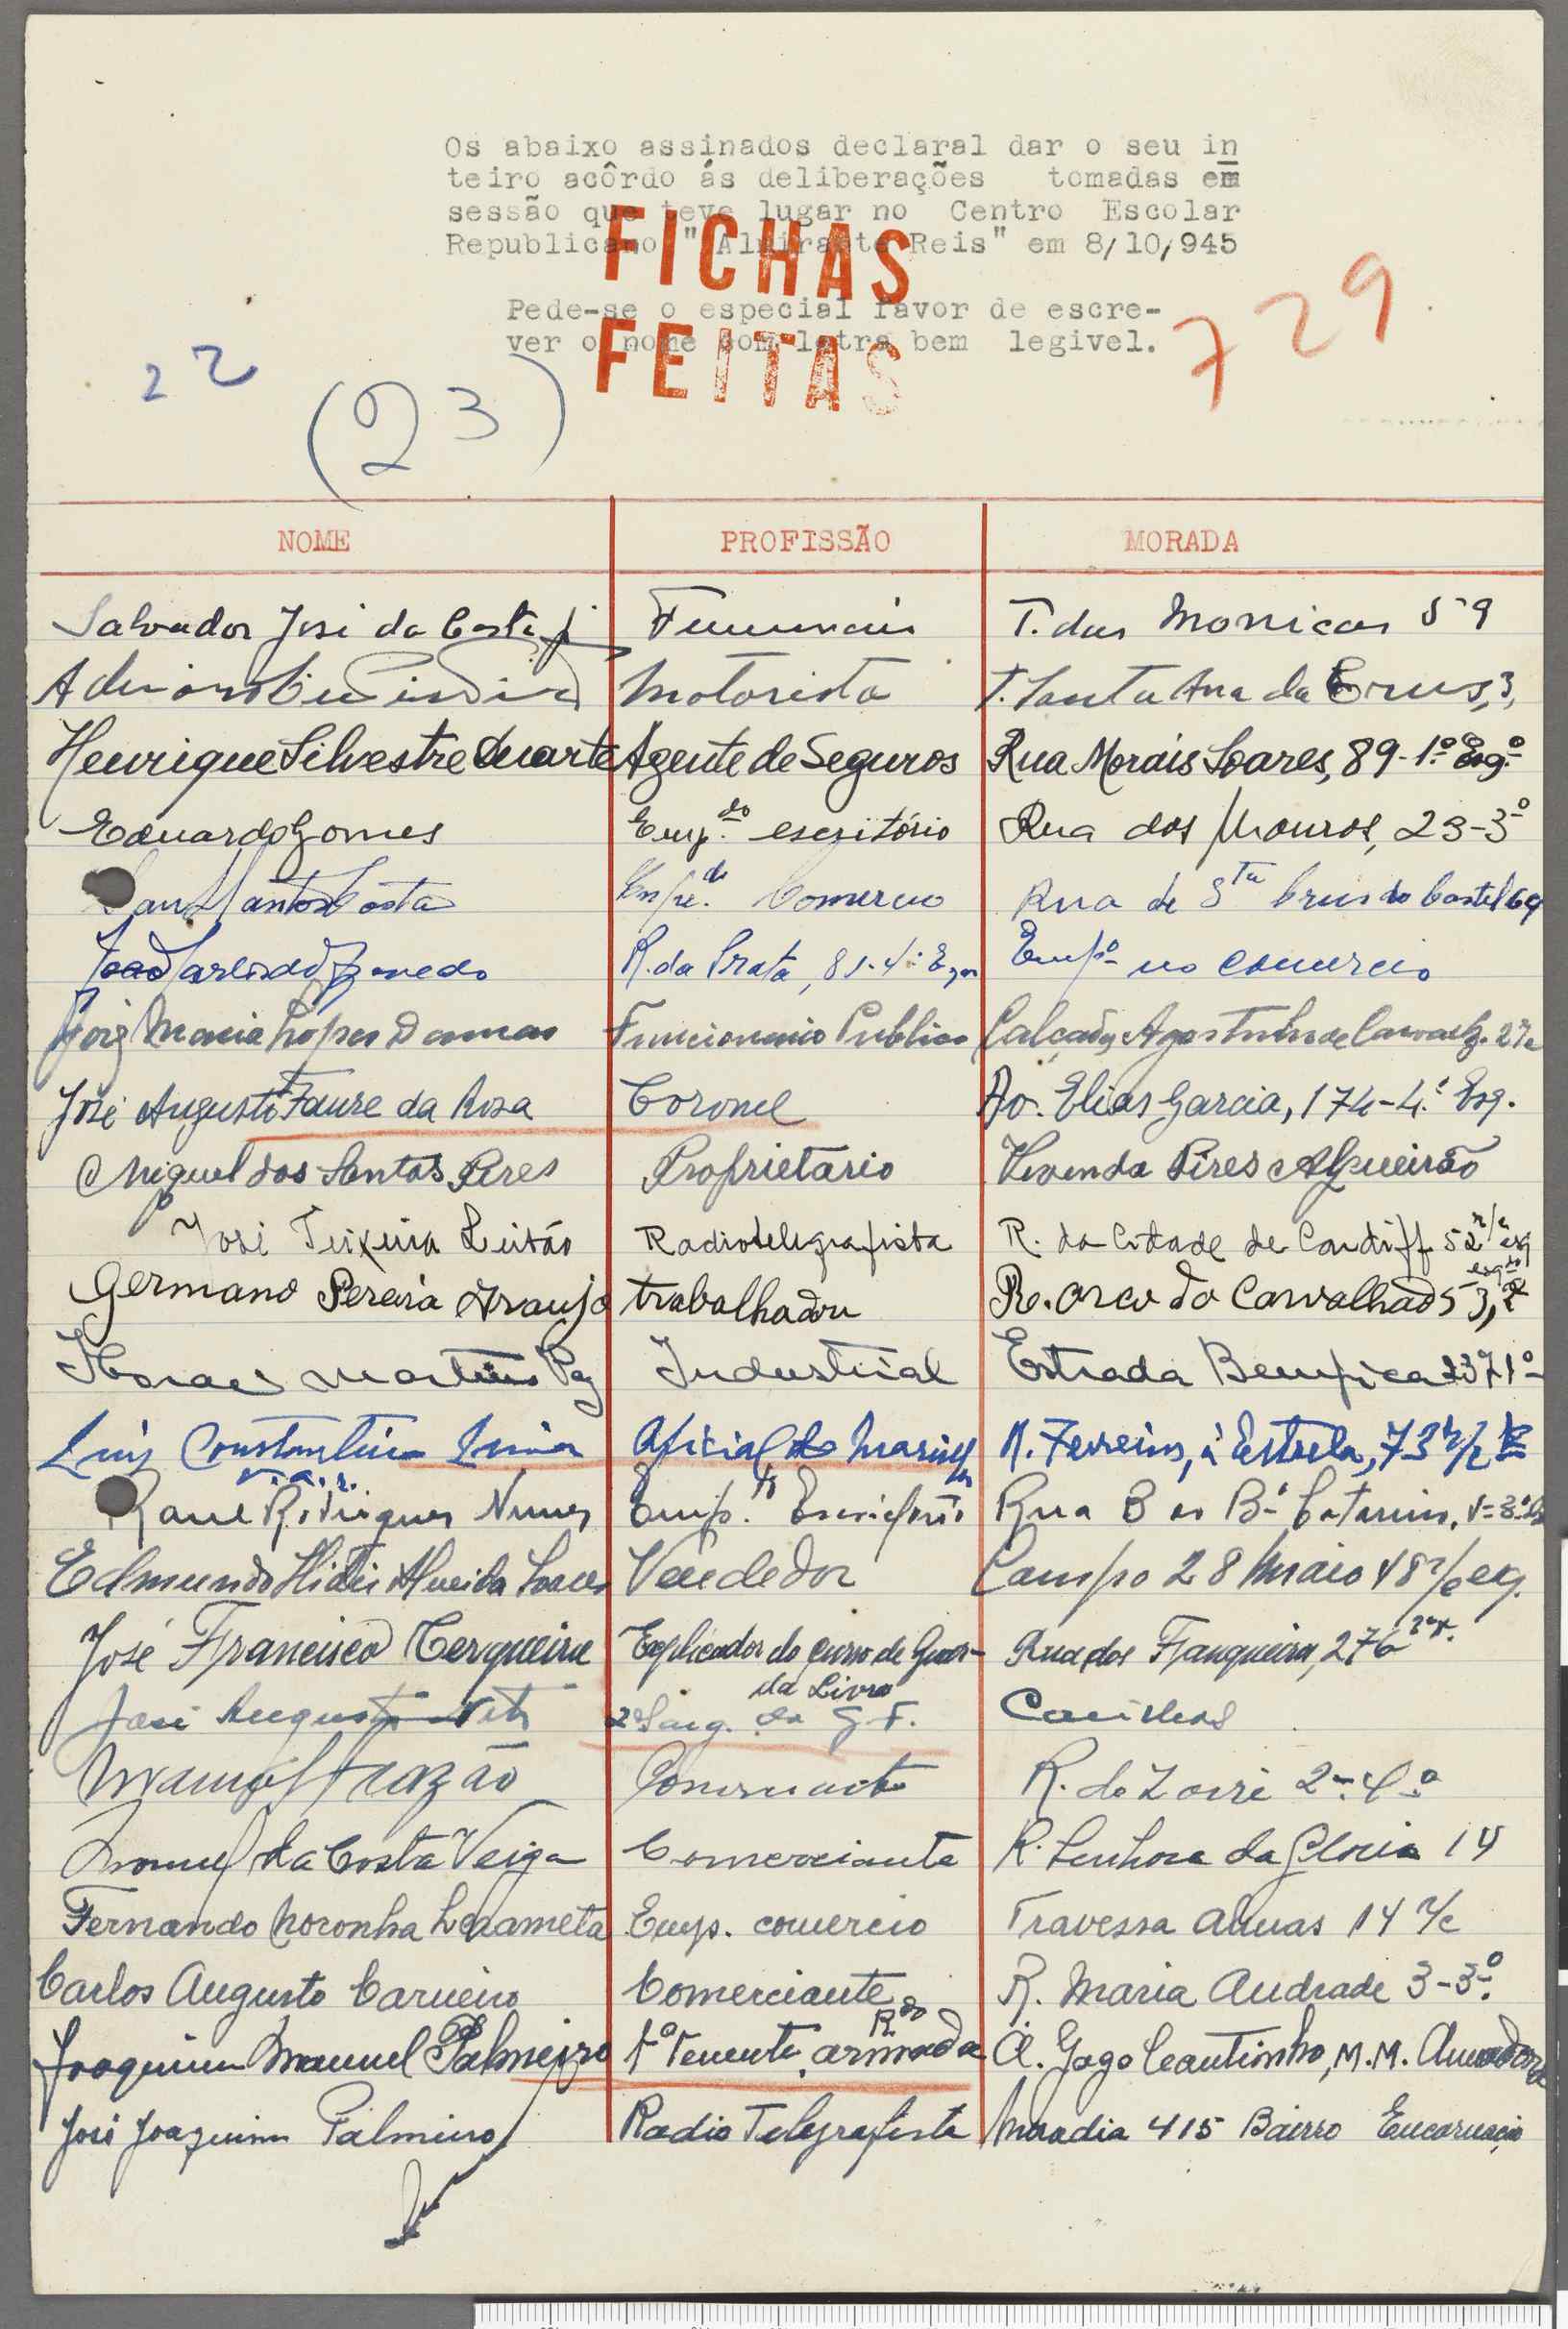 Os abaixo assinados declaral dar o seu in
teiro acôrdo ás deliberações tomadas em
sessão que teve lugar no Centro Escolar
Republicano "Almirante Reis" em 8/10/945
FICHAS
Pede-se o especial favor de escre-
ver o nome com letra bem legivel.
FEITAS
729
22
(23)
NOME PROFISSÃO MORADA
Salvador José da Costa T. das Monicas 59
Motorista T. Santa Ana da Crus, 3,
Henrique Silvestre Duarte Agente de Seguros Rua Morais Soares, 89-1º Esqº
Eduardo Gomes Emp.do escritório Rua dos Mouros, 23-3º
Santos Costa Empre.do Comercio Rua de Sta Crus do Castel 69
João Carlos de Azevedo R. da Prata, 81-4º Esq Empº no comercio
Maria Lopes Damas Funcionario Publico Calçada Agostinho de Carvalho 27
José Augusto Faure da Rosa Coronel Av. Elias Garcia, 174-4.º Esq.
Miguel dos Santos Pires Proprietario Vivenda Pires Algueirão
José Teixeira Leitão Radiotelegrafista R. da Cidade de Cardiff 52 r/c esq
Germano Pereira Araujo trabalhador R. Arco do Carvalhão 53, 2 esqdo
Martins Paz Industrial Estrada Bemfica 1º
Luiz Constantino Lima Oficial de Marinha R. Ferreira, á Estrela, 73 r/c
Raul Rodrigues Nunes Emp.do Escritorio Rua B ao Bº Catarino,
Edmundo Almeida Soares Vendedor Campo 28 Maio 48 r/c esq.
José Francisco Cerqueira Explicador do curso de Guar- Rua dos Fanqueiros, 276
da Livro
José Augusto 2º Sarg. da G. F. Caxilhas
Manuel Frazão R. da Torre 2-4º
Manuel da Costa Veiga Comerciante R. Senhora da Gloria 14
Fernando Noronha Emp. comercio Travessa Almas 14 r/c
Carlos Augusto Carneiro Comerciante R. Maria Andrade 3-3º
Rdo
Joaquim Manuel Palmeiro 1º Tenente, armada A. Gago Coutinho, M.M. Amadora
José Joaquim Palmeiro Radio Telegrafista Moradia 415 Bairro Encarnação